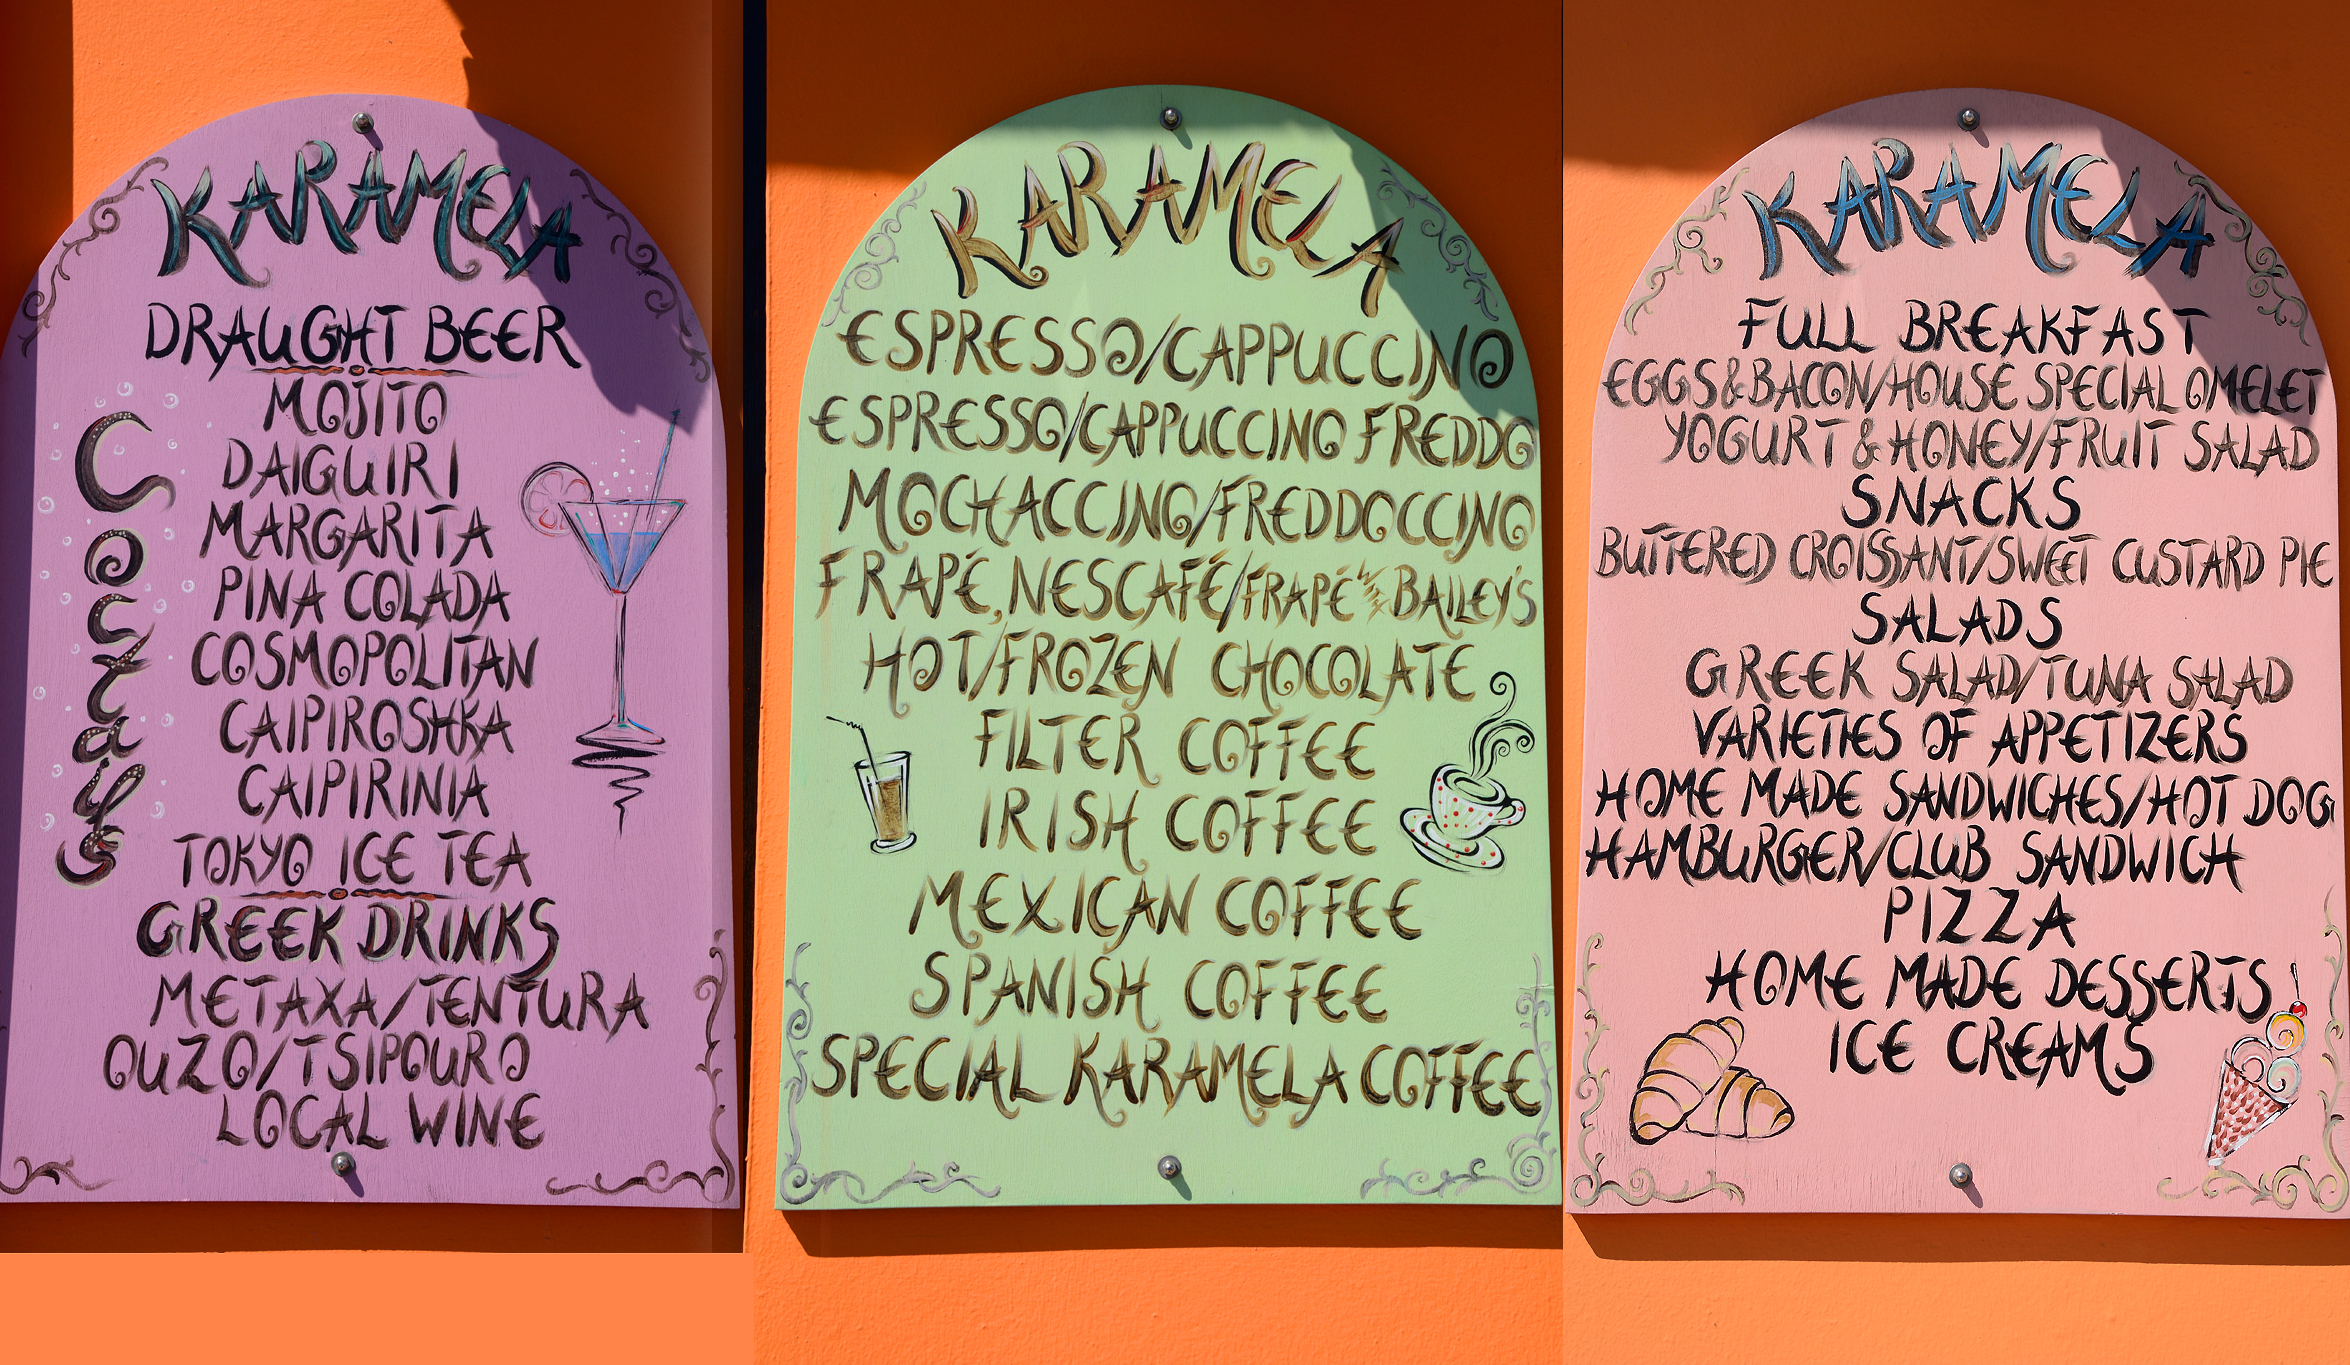 KARAMELA
DRAUGHT BEER
Coctays
MOJITO
DAIGUIRI
MARGARITA
PINA COLADA
COSMOPOLITAN
CAIPIROSHKA
CAIPIRINIA
TOKYO ICE TEA
GREEK DRINKS
METAXA/TENTURA
OUZO/TSIPOURO
LOCAL WINE
KARAMELA
ESPRESSO/CAPPUCCINO
ESPRESSO/CAPPUCCINO FREDDO
MOCHACCINO/FREDDOCCINO
FRAPÉ, NESCAFÉ/FRAPÉ BAILEY'S
HOT/FROZEN CHOCOLATE
FILTER COFFEE
IRISH COFFEE
MEXICAN COFFEE
SPANISH COFFEE
SPECIAL KARAMELA COFFEE
KARAMELA
FULL BREAKFAST
EGGS & BACON/HOUSE SPECIAL OMELET
YOGURT & HONEY/FRUIT SALAD
SNACKS
BUTTERED CROISSANT/SWEET CUSTARD PIE
SALADS
GREEK SALAD/TUNA SALAD
VARIETIES OF APPETIZERS
HOME MADE SANDWICHES/HOT DOG
HAMBURGER/CLUB SANDWICH
PIZZA
HOME MADE DESSERTS
ICE CREAMS